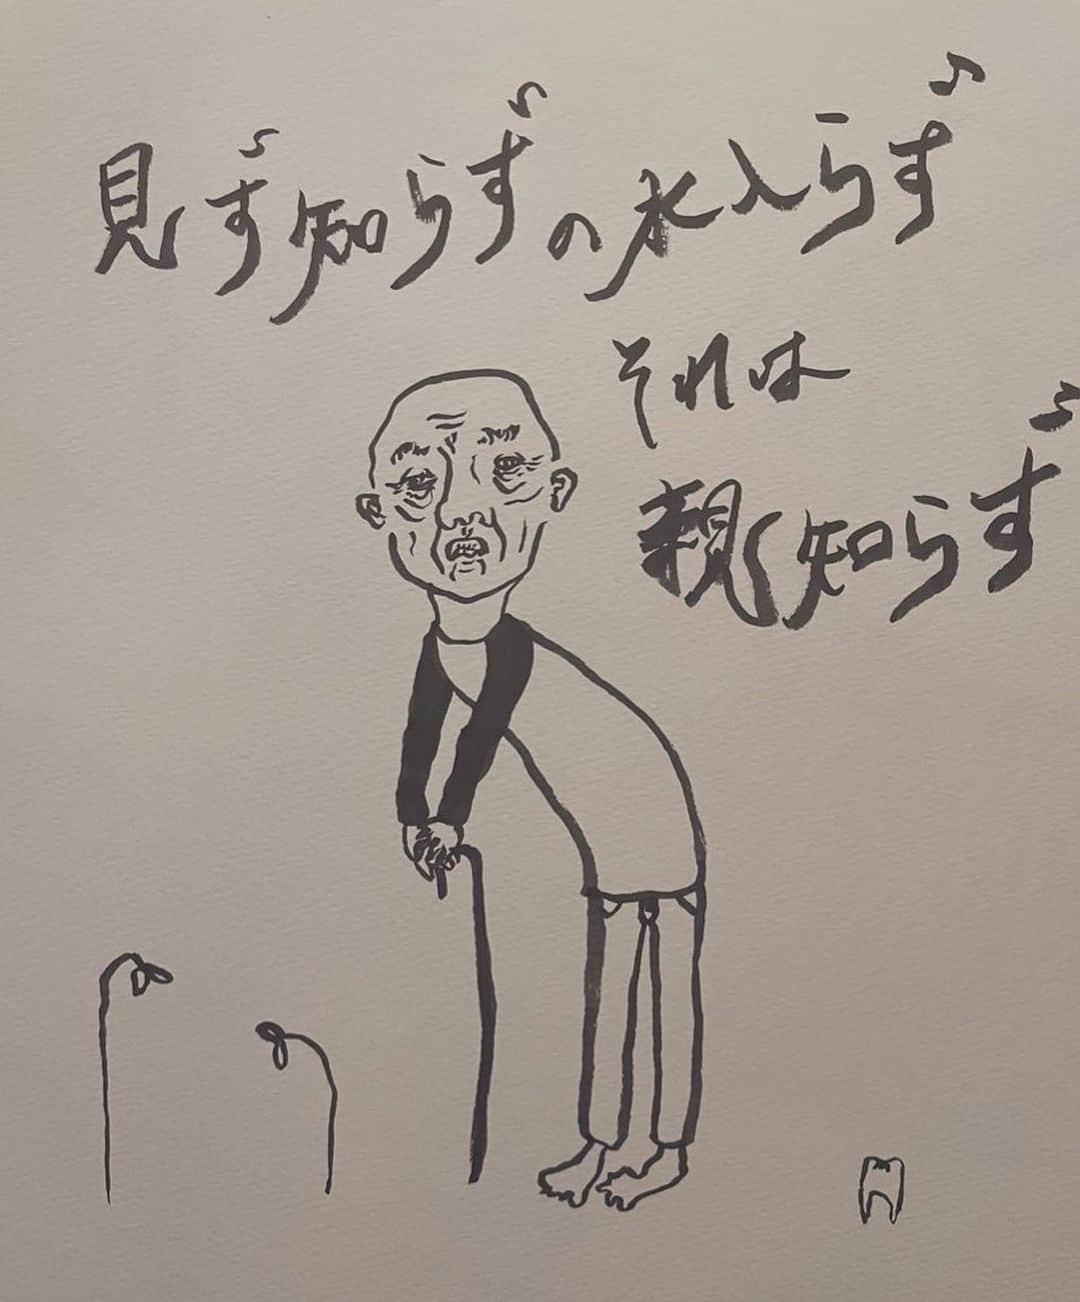 見ず知らずの水入らず
それは
親知らず